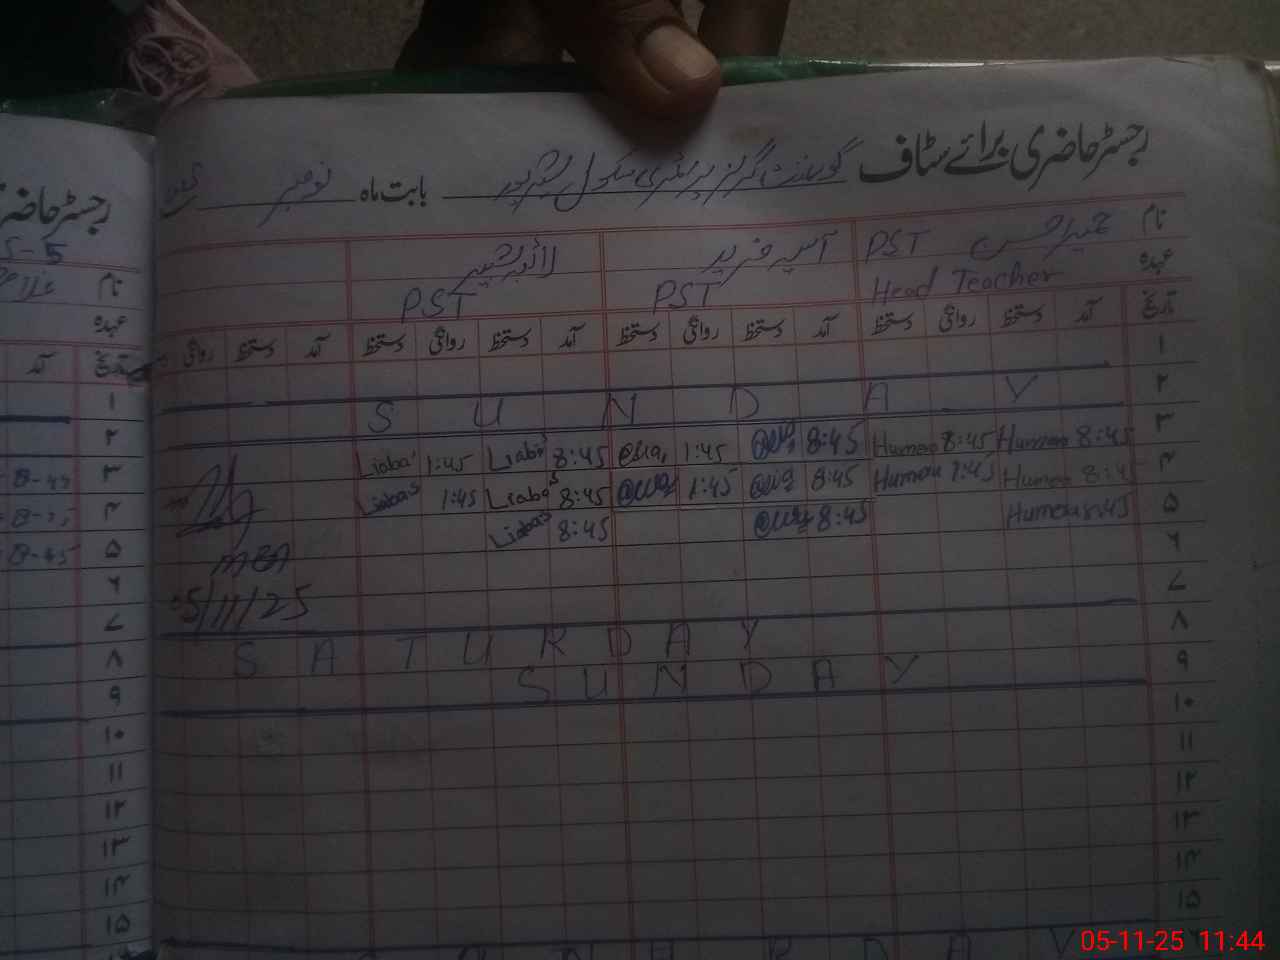 رجسٹر حاضری برائے سٹاف گورنمنٹ گرلز پرائمری سکول بابت ماہ نومبر
نام حمیرا حسن PST آسیہ فرید لائبہ بشیر
عہدہ Head Teacher PST PST
تاریخ آمد دستخط روانگی دستخط آمد دستخط روانگی دستخط آمد دستخط روانگی دستخط آمد دستخط روانگی
۱
۲ S U N D A Y
۳ Liaba 1:45 Liaba 8:45 1:45 8:45 Humera 8:45 Humera 8:45
۴ Liaba 1:45 Liaba 8:45 1:45 8:45 Humera 1:45 Humera 8:45
۵ Liaba 8:45 8:45 Humera 8:45
۶
۷ 5/11/25
۸ S A T U R D A Y
۹ S U N D A Y
۱۰
۱۱
۱۲
۱۳
۱۴
۱۵
رجسٹر حاضری
5-5
نام
عہدہ
تاریخ آمد
۱
۲
۳
۴
۵ 8-45
۶
۷
۸
۹
۱۰
۱۱
۱۲
۱۳
۱۴
۱۵
05-11-25 11:44